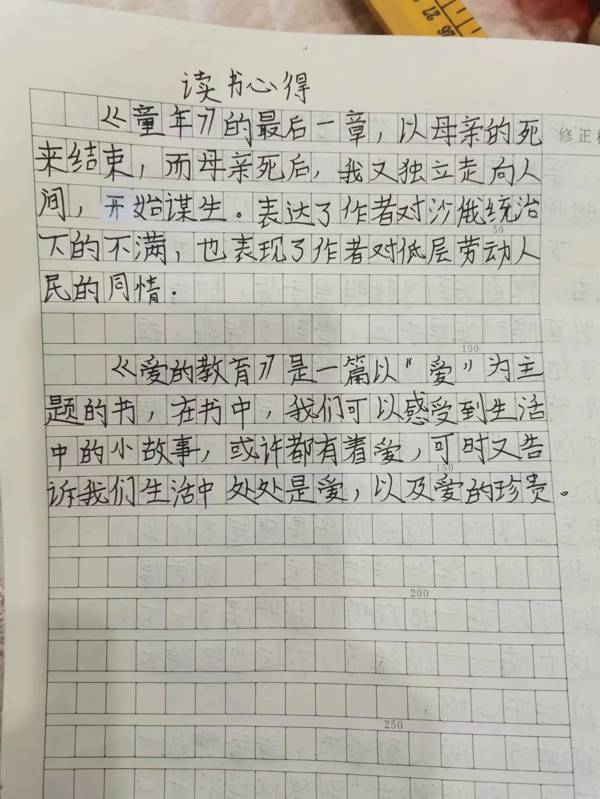 读书心得
《童年》的最后一章，以母亲的死
来结束，而母亲死后，我又独立走向人
间，开始谋生。表达了作者对沙俄统治
50
下的不满，也表现了作者对低层劳动人
民的同情.
100
《爱的教育》是一篇以“爱”为主
题的书，在书中，我们可以感受到生活
中的小故事，或许都有着爱，可时又告
150
诉我们生活中处处是爱，以及爱的珍贵。
200
250
修正
26
27